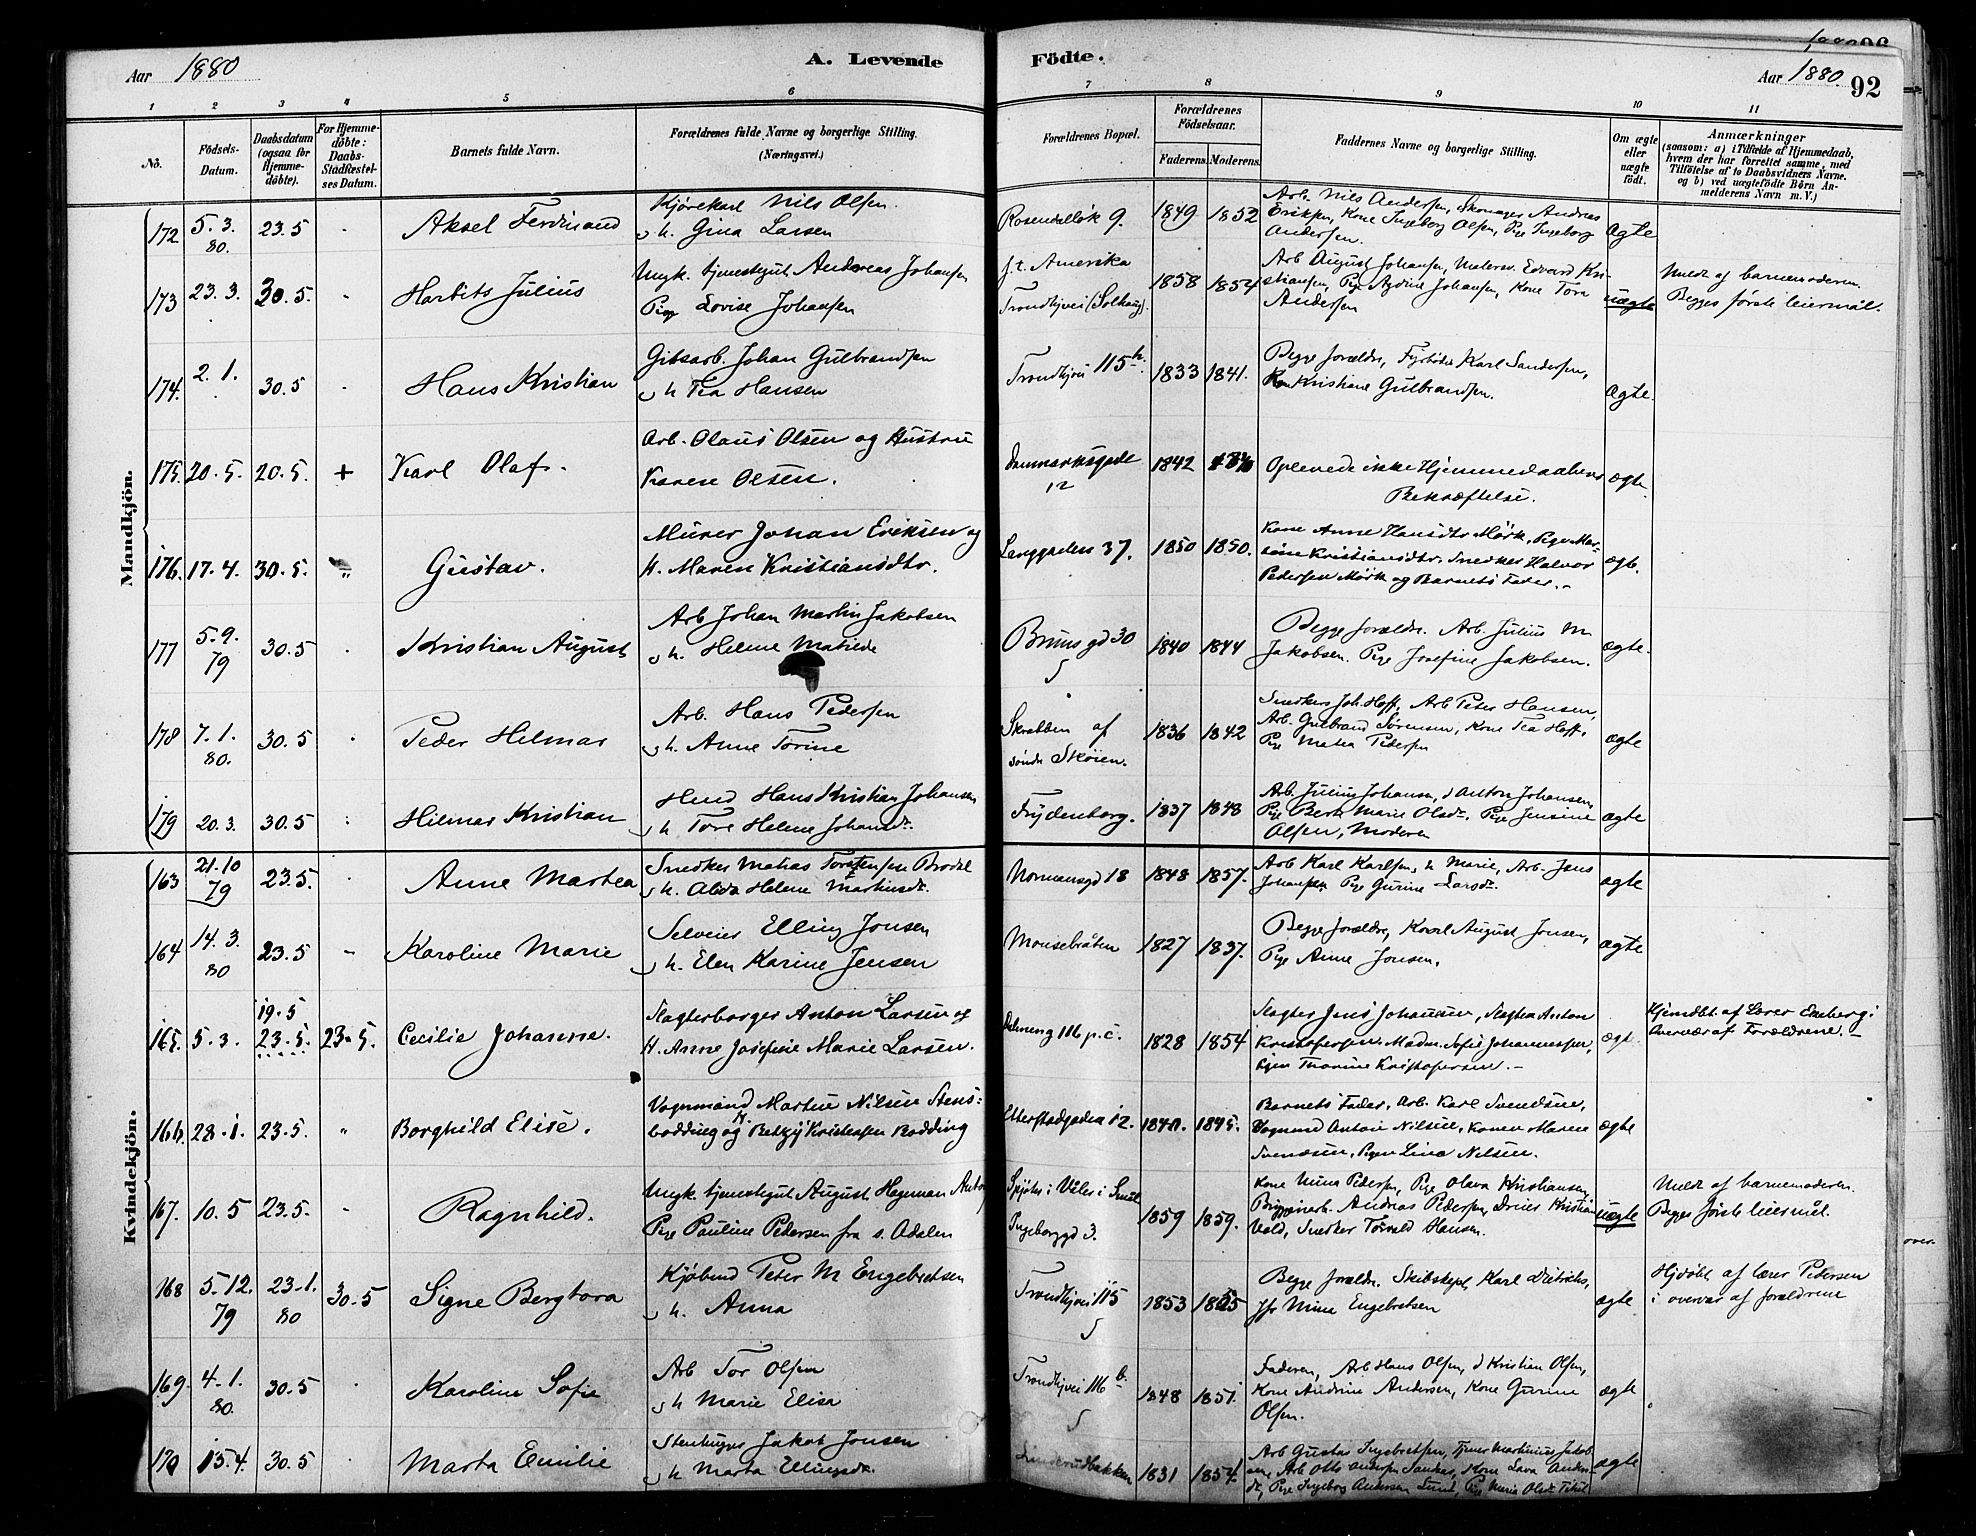 Aar 1880
A. Levende
Födte.
Aar 1880.
92
1 2 3 4 5 6 7 8 9 10 11
No.
Födsels-
Datum.
Daabsdatum
(ogsaa for
Hjemme-
döbte).
For Hjemme-
döbte:
Daabs-
Stadfæstel-
ses Datum.
Barnets fulde Navn.
Forældrenes fulde Navne og borgerlige Stilling.
(Næringsvei.)
Forældrenes Bopæl.
Forældrenes
Födselsaar.
Faderens. Moderens.
Faddernes Navne og borgerlige Stilling.
Om ægte
eller
uægte
födt.
Anmærkninger
(saasom: a) i Tilfælde af Hjemmedaab,
hvem der har forrettet samme, med
Tilföielse af to Daabsvidners Navne,
og b) ved uægtefödte Börn An-
melderens Navn m. V.)
Mandkjön.
172 5.3. 80. 23.5 Aksel Ferdinand
Kjørekarl Nils Olsen.
h. Gina Larsen
Rosendalløk 9. 1849 1852
Arb. Nils Andersen, Skomager Andreas
Eriksen, Kone Ingeborg Olsen, Pige Ingeborg
Andersen.
ægte
173 23.3. 30.5. Harbits Julius
Ungk. tjenestegut Andreas Johansen
Pige Lovise Johansen
f.t. Amerika
Trondhjvei (Solhaug). 1858 1854
Arb August Johansen, Malersv. Edvard Kri-
stiansen, Pige Josefine Johansen, Kone Tora
Andersen
uægte
Meldt af barnemoderen.
Begges første leiermål.
174. 2.1. 30.5 Hans Kristian
Gibsarb. Johan Gulbrandsen
h Tea Hansen
Trondhjvei 115 h. 1833 1841.
Begge forældre, Fyrbøder Karl Sandersen,
Kone Kristiane Gulbrandsen.
ægte.
175. 20.5. 20.5. + Karl Olaf.
Arb. Olaus Olsen og Hustru
Karen Olsen.
Danmarksgade
12
1842 1840
Oplevede ikke Hjemmedaabens
Bekræftelse.
ægte.
176. 17.4. 30.5. " Gustav.
Murer Johan Eriksen og
H. Maren Kristiansdtr.
Langgaden 37. 1850 1850.
Kone Anne Hansdtr Mørk, Pige Mar-
tine Kristiansdtr. Snedker Halvor
Pedersen Mørk og Barnets Fader.
ægte.
177 5.9. 79 30.5 Kristian August
Arb Johan Martin Jakobsen
h. Helene Matilde
Bruns gd 30
5
1840 1844
Begge forældre. Arb. Julius M
Jakobsen. Pige Josefine Jakobsen.
ægte.
178 7.1. 80. 30.5 Peder Hilmar
Arb. Hans Pedersen
h. Anne Torine
Skrabben af
søndr Skøien. 1836 1842
Snedkers Joh. Hoff, Arb Peter Hansen,
Arb. Gulbrand Sørensen, Kone Tea Hoff,
Pige Matea Pedersen
ægte
179 20.3. 30.5 Hilmar Kristian
Hmd Hans Kristian Johansen
h Tore Helene Johansdr.
Frydenborg. 1837 1848
Arb. Julius Johansen, d Anton Johansen,
Pige Berte Marie Olsdr. Pige Jensine
Olsen, Moderen
ægte
Kvindekjön.
163 21.10 79 23.5. Anne Martea
Snedker Matias Torstensen Brodal
h. Alida Helene Martinsdr.
Normansgd 18 1848 1857.
Arb Karl Karlsen, h Marie, Arb. Jens
Johansen, Pige Gurine Larsdr.
ægte
164 14.3. 80 23.5 Karoline Marie
Selveier Elling Jonsen
h. Elen Karine Jensen
Monsebråten 1827 1837.
Begge forældre, Karl August Jonsen,
Pige Anne Jonsen.
ægte
165. 5.3. 19.5 23.5. 23.5. Cecilie Johanne.
Slagterborger Anton Larsen og
H. Anne Josefine Marie Larsen.
116 p.c. 1828 1854
Slagter Jens Johansen, Slagter Anton
Kristofersen. Madm. Sofie Johannessen,
Pigen Thorine Kristofersen.
ægte
Hjemdbt. af Lærer Enberg i
Overvær af Forældrene.
166. 28.1. 23.5. " Borghild Elise.
Vognmand Martin Nilsen Stens-
bødding og H. Betzy Kristensen Bødding
Etterstadgaden 12. 1840. 1845.
Barnets Fader, Arb. Karl Svendsen,
Vognmd Anton Nilsen, Konen Maren
Svendsen, Pigen Line Nilsen.
ægte
167. 10.5 23.5. Ragnhild.
Ungk. tjenestegut August Hageman
Pige Pauline Pedersen fra s. Adalen
Spjøter i Våler i Smål
Ingeborggd 3. 1859 1859.
Kone Mina Pedersen, Pige Olava Kristiansen,
Bryggeriarb. Andreas Pedersen, Dreier Kristian
Vold, Snedker Torvald Hansen.
uægte
Meldt af barnemoderen.
Begges første leiermål.
168 5.12. 79 23.1. 80 30.5 Signe Bergtora
Kjøbmd Peter M Engebretsen
h. Anna
Trondhjvei 115
5
1853 1855
Begge forældre. Skibskapt. Karl Dietrichs,
Jfr Mina Engebretsen
ægte
Hjdøbt af lærer Pedersen
i overvær af forældrene
169. 4.1. 80. 30.5 Karoline Sofie
Arb Tor Olsen
h Marie Elisa
Trondhjvei 116 b.
5
1848 1851
Faderen, Arb Hans Olsen, d Kristian Olsen,
Kone Andrine Andersen, Kone Gurine
Olsen.
ægte
170 15.4. 30.5 Marta Emilie
Stenhugger Jakob Jonsen
h Marta Ellingsdr.
Linderudbakken 1831 1854.
Arb Gustav Ingebretsen, Tjener Martinius Jakob-
sen, Arb Otto Andersen Sandås, Kone Lava Anders-
dr, Pige Ingeborg Andersen Lund, Pige Marie Olsdr
ægte